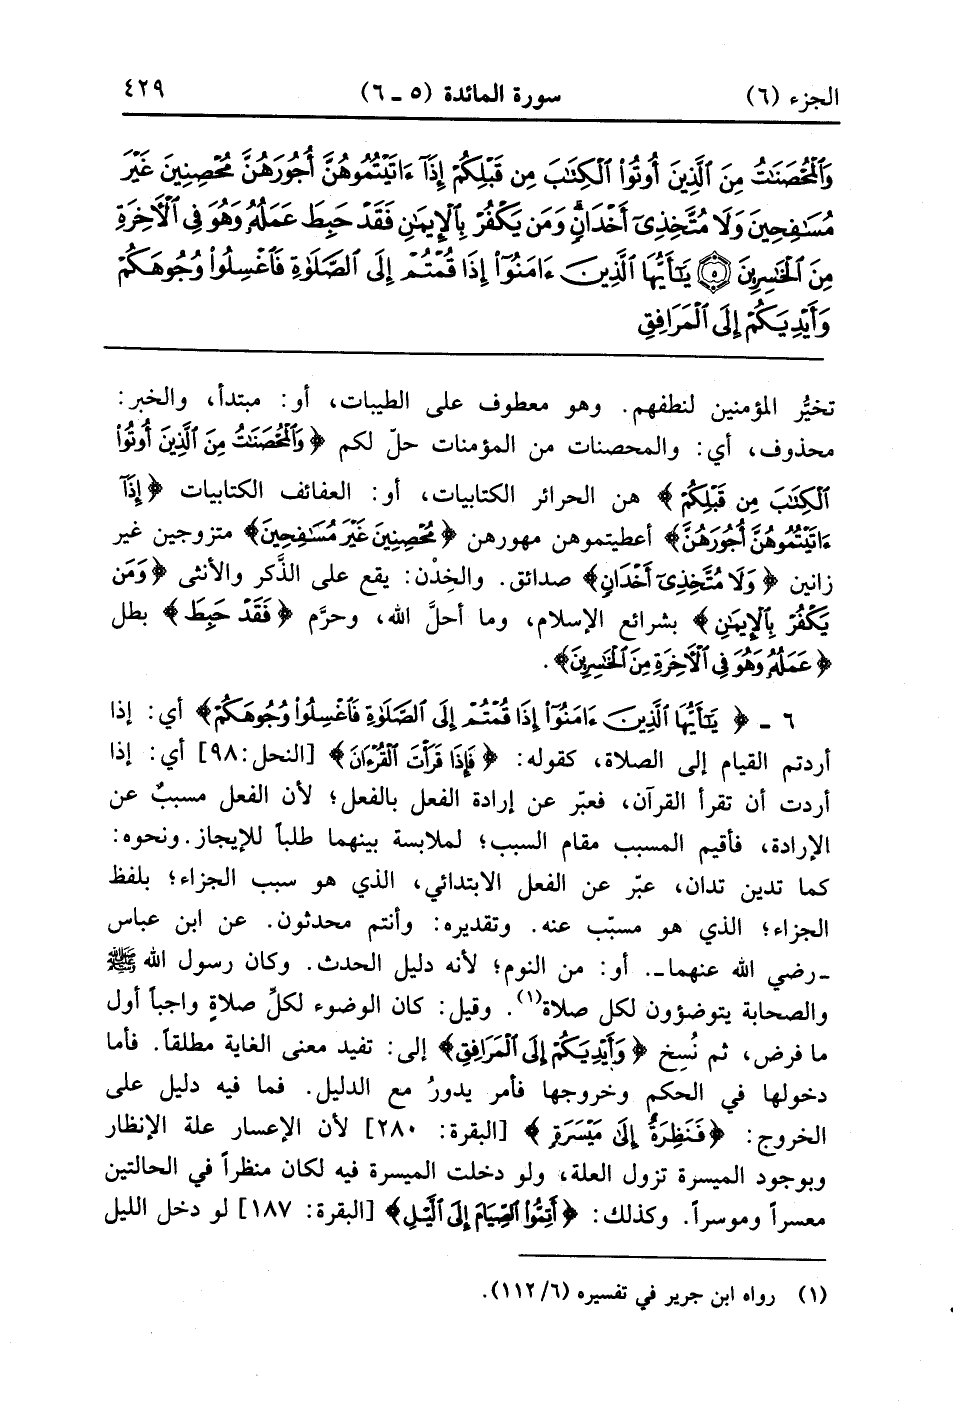 الجزء (٦) سورة المائدة (٥ ـ ٦) ٤٢٩
وَٱلْمُحْصَنَٰتُ مِنَ ٱلَّذِينَ أُوتُوا۟ ٱلْكِتَٰبَ مِن قَبْلِكُمْ إِذَآ ءَاتَيْتُمُوهُنَّ أُجُورَهُنَّ مُحْصِنِينَ غَيْرَ
مُسَٰفِحِينَ وَلَا مُتَّخِذِىٓ أَخْدَانٍ وَمَن يَكْفُرْ بِٱلْإِيمَٰنِ فَقَدْ حَبِطَ عَمَلُهُۥ وَهُوَ فِى ٱلْـَٔاخِرَةِ
مِنَ ٱلْخَٰسِرِينَ ﴿٥﴾ يَٰٓأَيُّهَا ٱلَّذِينَ ءَامَنُوٓا۟ إِذَا قُمْتُمْ إِلَى ٱلصَّلَوٰةِ فَٱغْسِلُوا۟ وُجُوهَكُمْ
وَأَيْدِيَكُمْ إِلَى ٱلْمَرَافِقِ
تخيُّر المؤمنين لنطفهم. وهو معطوف على الطيبات، أو: مبتدأ، والخبر:
محذوف، أي: والمحصنات من المؤمنات حلّ لكم ﴿وَٱلْمُحْصَنَٰتُ مِنَ ٱلَّذِينَ أُوتُوا۟
ٱلْكِتَٰبَ مِن قَبْلِكُمْ﴾ هن الحرائر الكتابيات، أو: العفائف الكتابيات ﴿إِذَآ
ءَاتَيْتُمُوهُنَّ أُجُورَهُنَّ﴾ أعطيتموهن مهورهن ﴿مُحْصِنِينَ غَيْرَ مُسَٰفِحِينَ﴾ متزوجين غير
زانين ﴿وَلَا مُتَّخِذِىٓ أَخْدَانٍ﴾ صدائق. والخِدْن: يقع على الذَّكر والأنثى ﴿وَمَن
يَكْفُرْ بِٱلْإِيمَٰنِ﴾ بشرائع الإسلام، وما أحلَّ الله، وحرَّم ﴿فَقَدْ حَبِطَ﴾ بطل
﴿عَمَلُهُۥ وَهُوَ فِى ٱلْـَٔاخِرَةِ مِنَ ٱلْخَٰسِرِينَ﴾.
٦ ـ ﴿يَٰٓأَيُّهَا ٱلَّذِينَ ءَامَنُوٓا۟ إِذَا قُمْتُمْ إِلَى ٱلصَّلَوٰةِ فَٱغْسِلُوا۟ وُجُوهَكُمْ﴾ أي: إذا
أردتم القيام إلى الصلاة، كقوله: ﴿فَإِذَا قَرَأْتَ ٱلْقُرْءَانَ﴾ [النحل:٩٨] أي: إذا
أردت أن تقرأ القرآن، فعبّر عن إرادة الفعل بالفعل؛ لأن الفعل مسببٌ عن
الإرادة، فأقيم المسبب مقام السبب؛ لملابسة بينهما طلباً للإيجاز. ونحوه:
كما تدين تدان، عبّر عن الفعل الابتدائي، الذي هو سبب الجزاء؛ بلفظ
الجزاء؛ الذي هو مسبّب عنه. وتقديره: وأنتم محدثون. عن ابن عباس
ـ رضي الله عنهما ـ. أو: من النوم؛ لأنه دليل الحدث. وكان رسول الله ﷺ
والصحابة يتوضؤون لكل صلاة(١). وقيل: كان الوضوء لكلِّ صلاةٍ واجباً أول
ما فرض، ثم نُسِخ ﴿وَأَيْدِيَكُمْ إِلَى ٱلْمَرَافِقِ﴾ إلى: تفيد معنى الغاية مطلقاً. فأما
دخولها في الحكم وخروجها فأمر يدورُ مع الدليل. فما فيه دليل على
الخروج: ﴿فَنَظِرَةٌ إِلَىٰ مَيْسَرَةٍ﴾ [البقرة: ٢٨٠] لأن الإعسار علة الإنظار
وبوجود الميسرة تزول العلة، ولو دخلت الميسرة فيه لكان منظراً في الحالتين
معسراً وموسراً. وكذلك: ﴿أَتِمُّوا۟ ٱلصِّيَامَ إِلَى ٱلَّيْلِ﴾ [البقرة: ١٨٧] لو دخل الليل
(١) رواه ابن جرير في تفسيره (٦/ ١١٢).